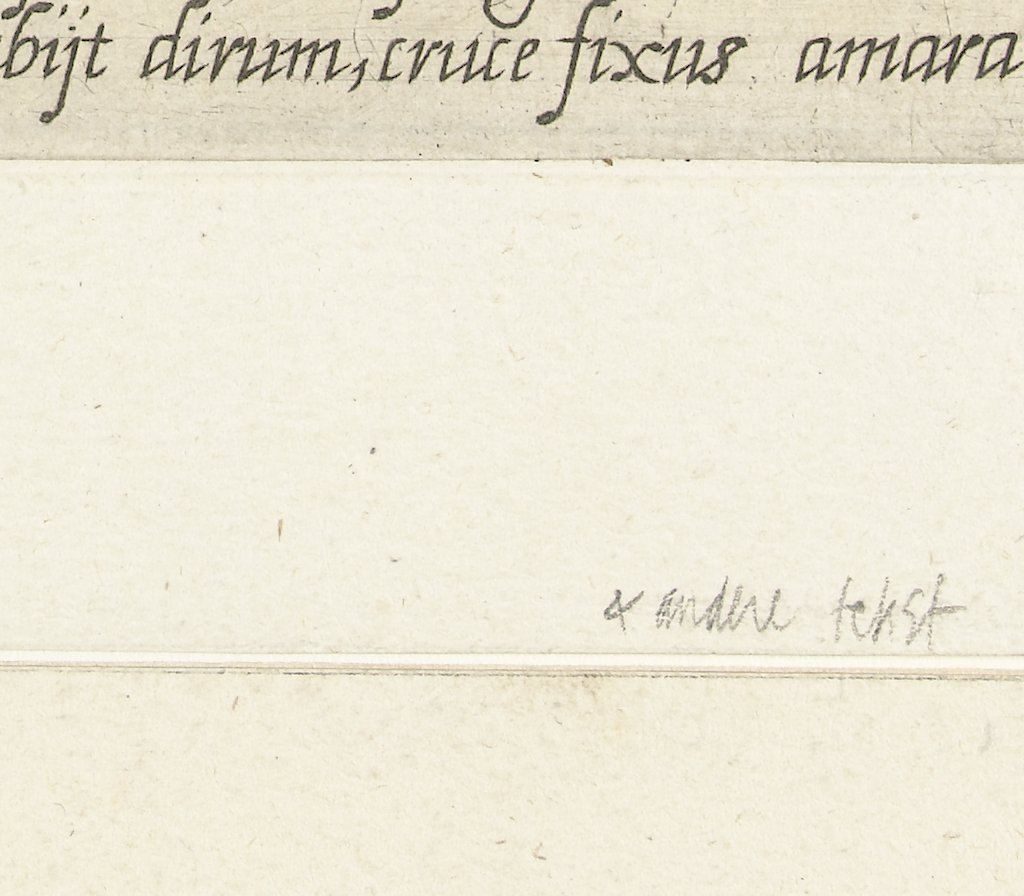 bijt dirum, cruce fixus amara
x andere tekst